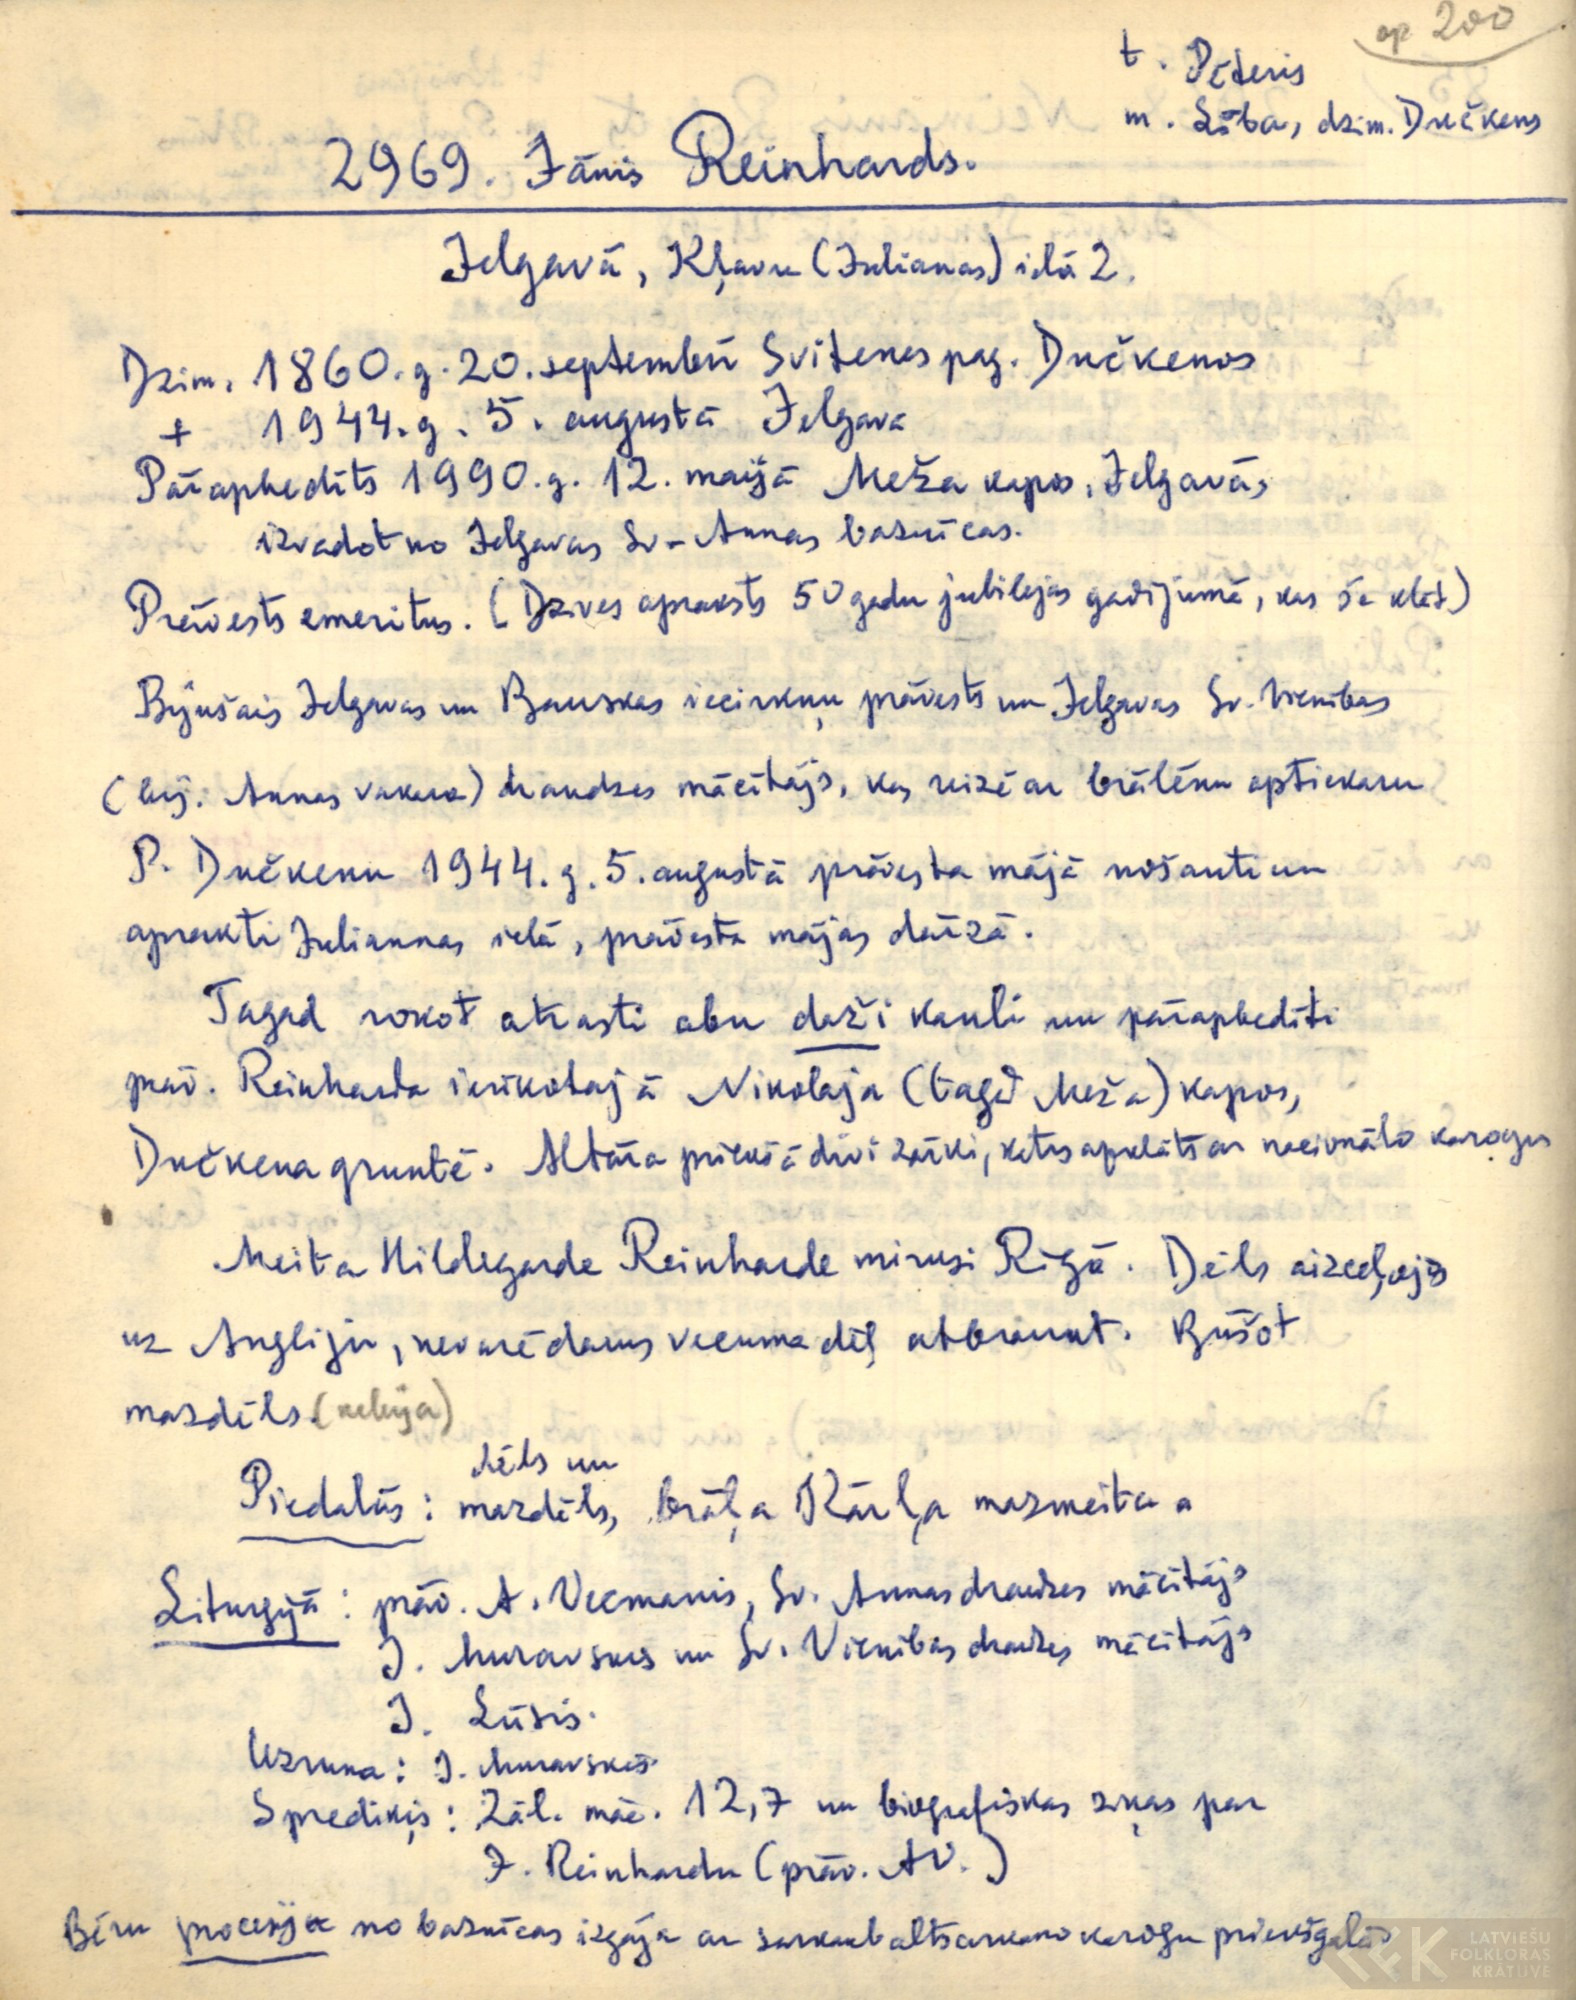 ap 200
t. Pēteris
m. Lība, dzim. Dučkens
2969. Jānis Reinhards.
Jelgavā, Kļavu (Julianas) ielā 2.
Dzim. 1860. g. 20. septembrī Svitenes pag. Dučkenos
+ 1944. g. 5. augustā Jelgavā
Pārapbedīts 1990. g. 12. maijā Meža kapos, Jelgavā,
izvadot no Jelgavas Sv. Annas baznīcas.
Prāvests emeritus. (Dzīves apraksts 50 gadu jubilejas gadījumā, kas še klāt)
Bijušais Jelgavas un Bauskas iecirkņu prāvests un Jelgavas Sv. Vienības
(bij. Annas vakara) draudzes mācītājs, kas reizē ar brālēnu aptiekaru
P. Dučkenu 1944. g. 5. augustā prāvesta mājā nošauti un
aprakti Juliannas ielā, prāvesta mājas dārzā.
Tagad rokot atrasti abu daži kauli un pārapbedīti
prāv. Reinharda ierīkotajā Nikolaja (tagad Meža) kapos,
Dučkena gruntē. Altāra priekšā divi zārki, katrs apklāts ar nacionālo karogu
Meita Hildegarde Reinharde mirusi Rīgā. Dēls aizceļojis
uz Angliju, nevarēdams vecuma dēļ atbraukt. Būšot
mazdēls. (nebija)
dēls un
Piedalās: mazdēls, brāļa Kārļa mazmeita
Liturģijā: prāv. A. Vecmanis, Sv. Annas draudzes mācītājs
J. Muravskis un Sv. Vienības draudzes mācītājs
J. Lūsis.
Uzruna: J. Muravskis
Sprediķis: Zāl. māc. 12,7 un biogrāfiskas ziņas par
J. Reinhardu (prāv. AV.)
Bēru procesija no baznīcas izgāja ar sarkanbaltsarkano karogu priekšgalā
LATVIEŠU
FOLKLORAS
KRĀTUVE